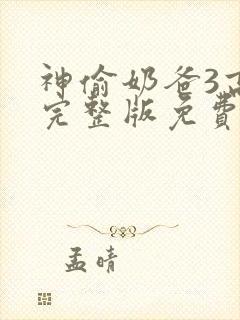 神偷奶爸3高
完整版免費
孟晴